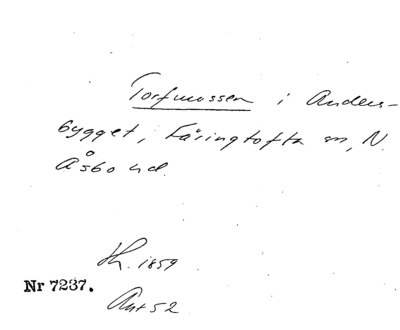 Torfmossen i Anders-
bygget, Färingtofta sn, N.
Åsbo hd.
Hz. 1859
Nr 7237.
Ant 52